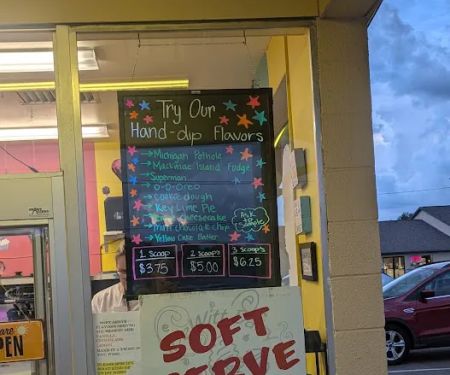 Try Our
Hand-dip Flavors
→ Michigan Pothole
→ Mackinac Island Fudge
→ Superman
→ O-O-Oreo
Cookie dough
Key Lime Pie
cheesecake
mint chocolate chip
→ Yellow Cake Batter
Ask to
Sample
1 Scoop
$3.75
2 Scoops
$5.00
3 Scoops
$6.25
SOFT
SERVE
ARE
OPEN